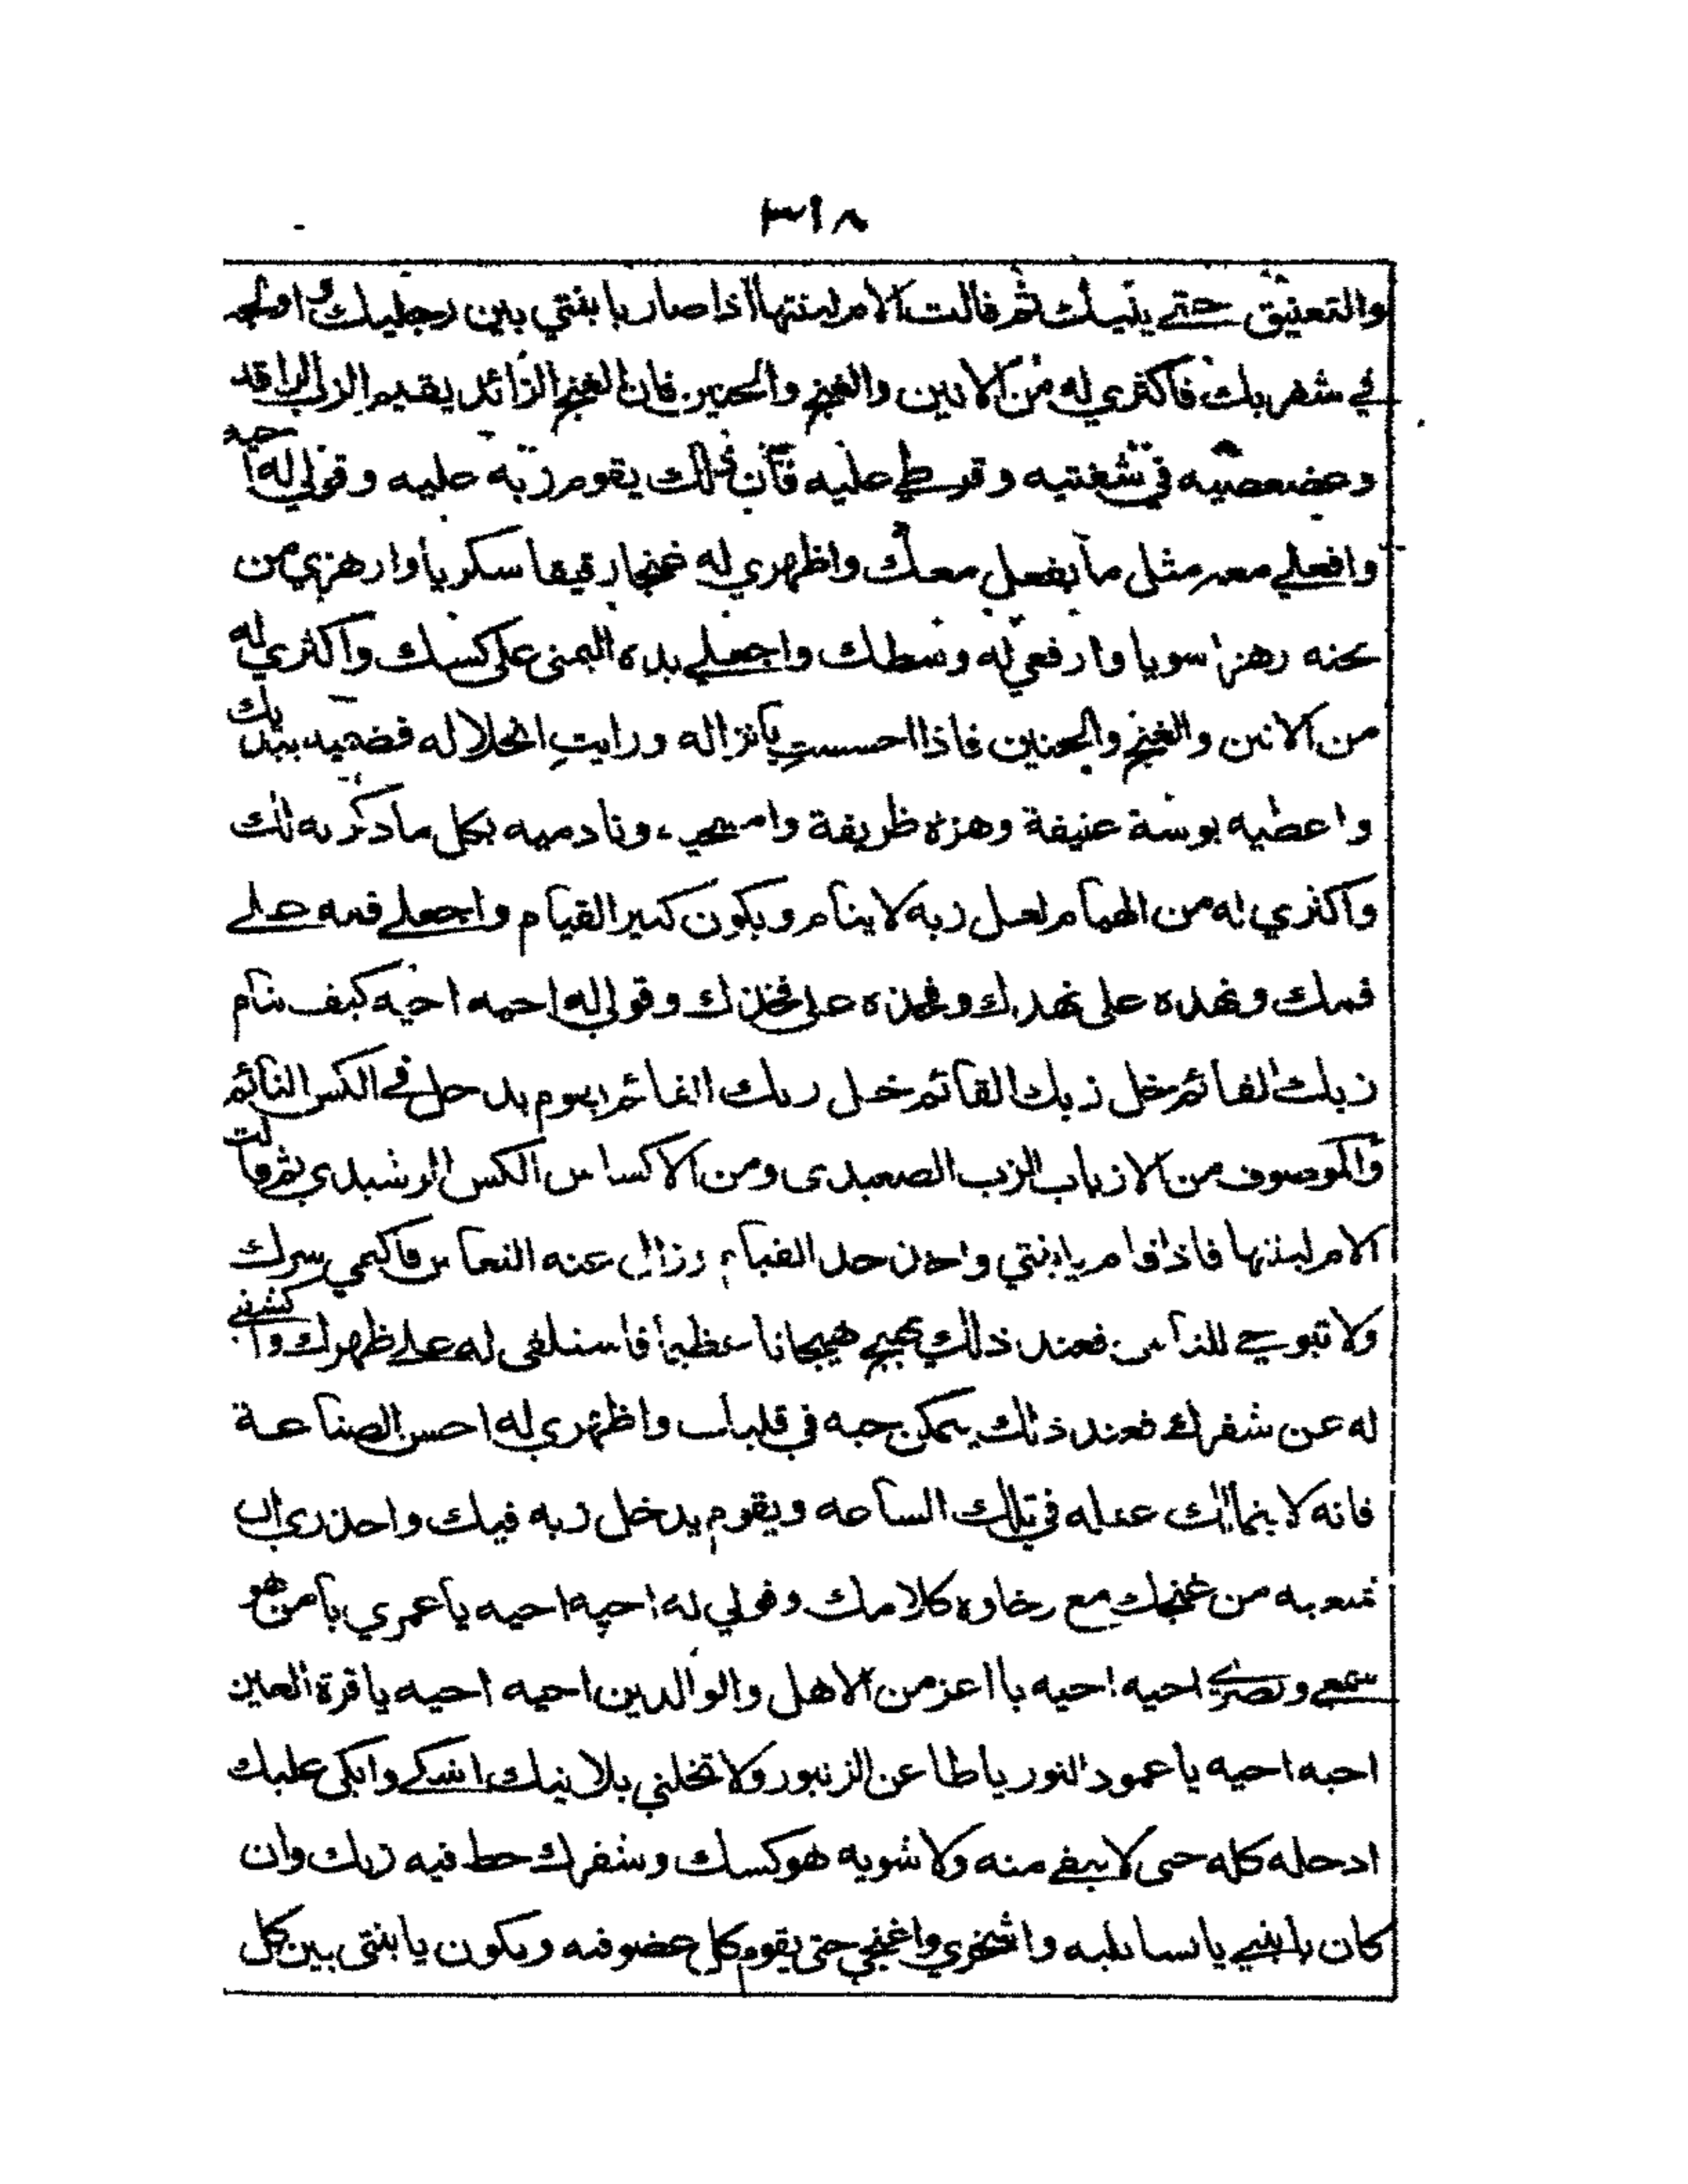 ٣١٨
والتعنيق حتے ينيك ثم قالت الام لبنتها اذا صار يا بنتي بين رجليك واولجه
في شفريك فاكثري له من الانين والغنج والحنين فان الغنج الزائد يقيم الزب الراقد
وعضعضيه في شفتيه وقرطي عليه فان ذلك يقوم زبه عليه وقولي له احيه
وافعلي معه مثل ما يفعل معك واظهري له غنجا رقيقا سكريا وارهزي من
تحته رهزا سويا وارفعي له وسطك واجعلي يده اليمنى على كسك واكثري له
من الانين والغنج والحنين فاذا احسست بانزاله ورايت انحلاله فضميه بيديك
واعطيه بوسة عنيفة وهزه ظريفة وامسحيه ونادميه بكل ما ذكرته لك
واكثري له من الهيام لعل زبه لا ينام ويكون كثير القيام واجعلي فمه على
فمك ونهده على نهدك وفخذه على فخذك وقولي له احيه احيه كيف ينام
زبك القائم خل زبك القائم خل زبك القائم يقوم يدخل في الكس النائم
والموصوف من الازباب الزب الصعيدى ومن الاكساس الكس الرشيدي ثم قالت
الام لبنتها فاذا قام يا بنتي واخذ حد القيام وزال عنه النعاس فاكتمي سرك
ولا تبوحي للناس فعند ذلك يهيج هيجانا عظيما فاستلقى له على ظهرك واكشفي
له عن شفرك فعند ذلك يتمكن حبه في قلبك واظهري له احسن الصناعة
فانه لا يتمالك عقله في تلك الساعه ويقوم يدخل زبه فيك واحذري ان
تمنعيه من غنجك مع رخاوة كلامك وقولي له احيه احيه يا عمري يا من هو
سمعي وبصري احيه احيه يا اعز من الاهل والوالدين احيه احيه يا قرة العين
احيه احيه يا عمود النور يا طاعن الزنبور ولا تخلني بلا نيك اشكي وابكى عليك
ادخله كله حتى لا يبقى منه ولا شويه هو كسك وشفرك حط فيه زبك وان
كان واشخري واغنجي حتى يقوم كل عضو فيه ويكون يا بنتى بين كل